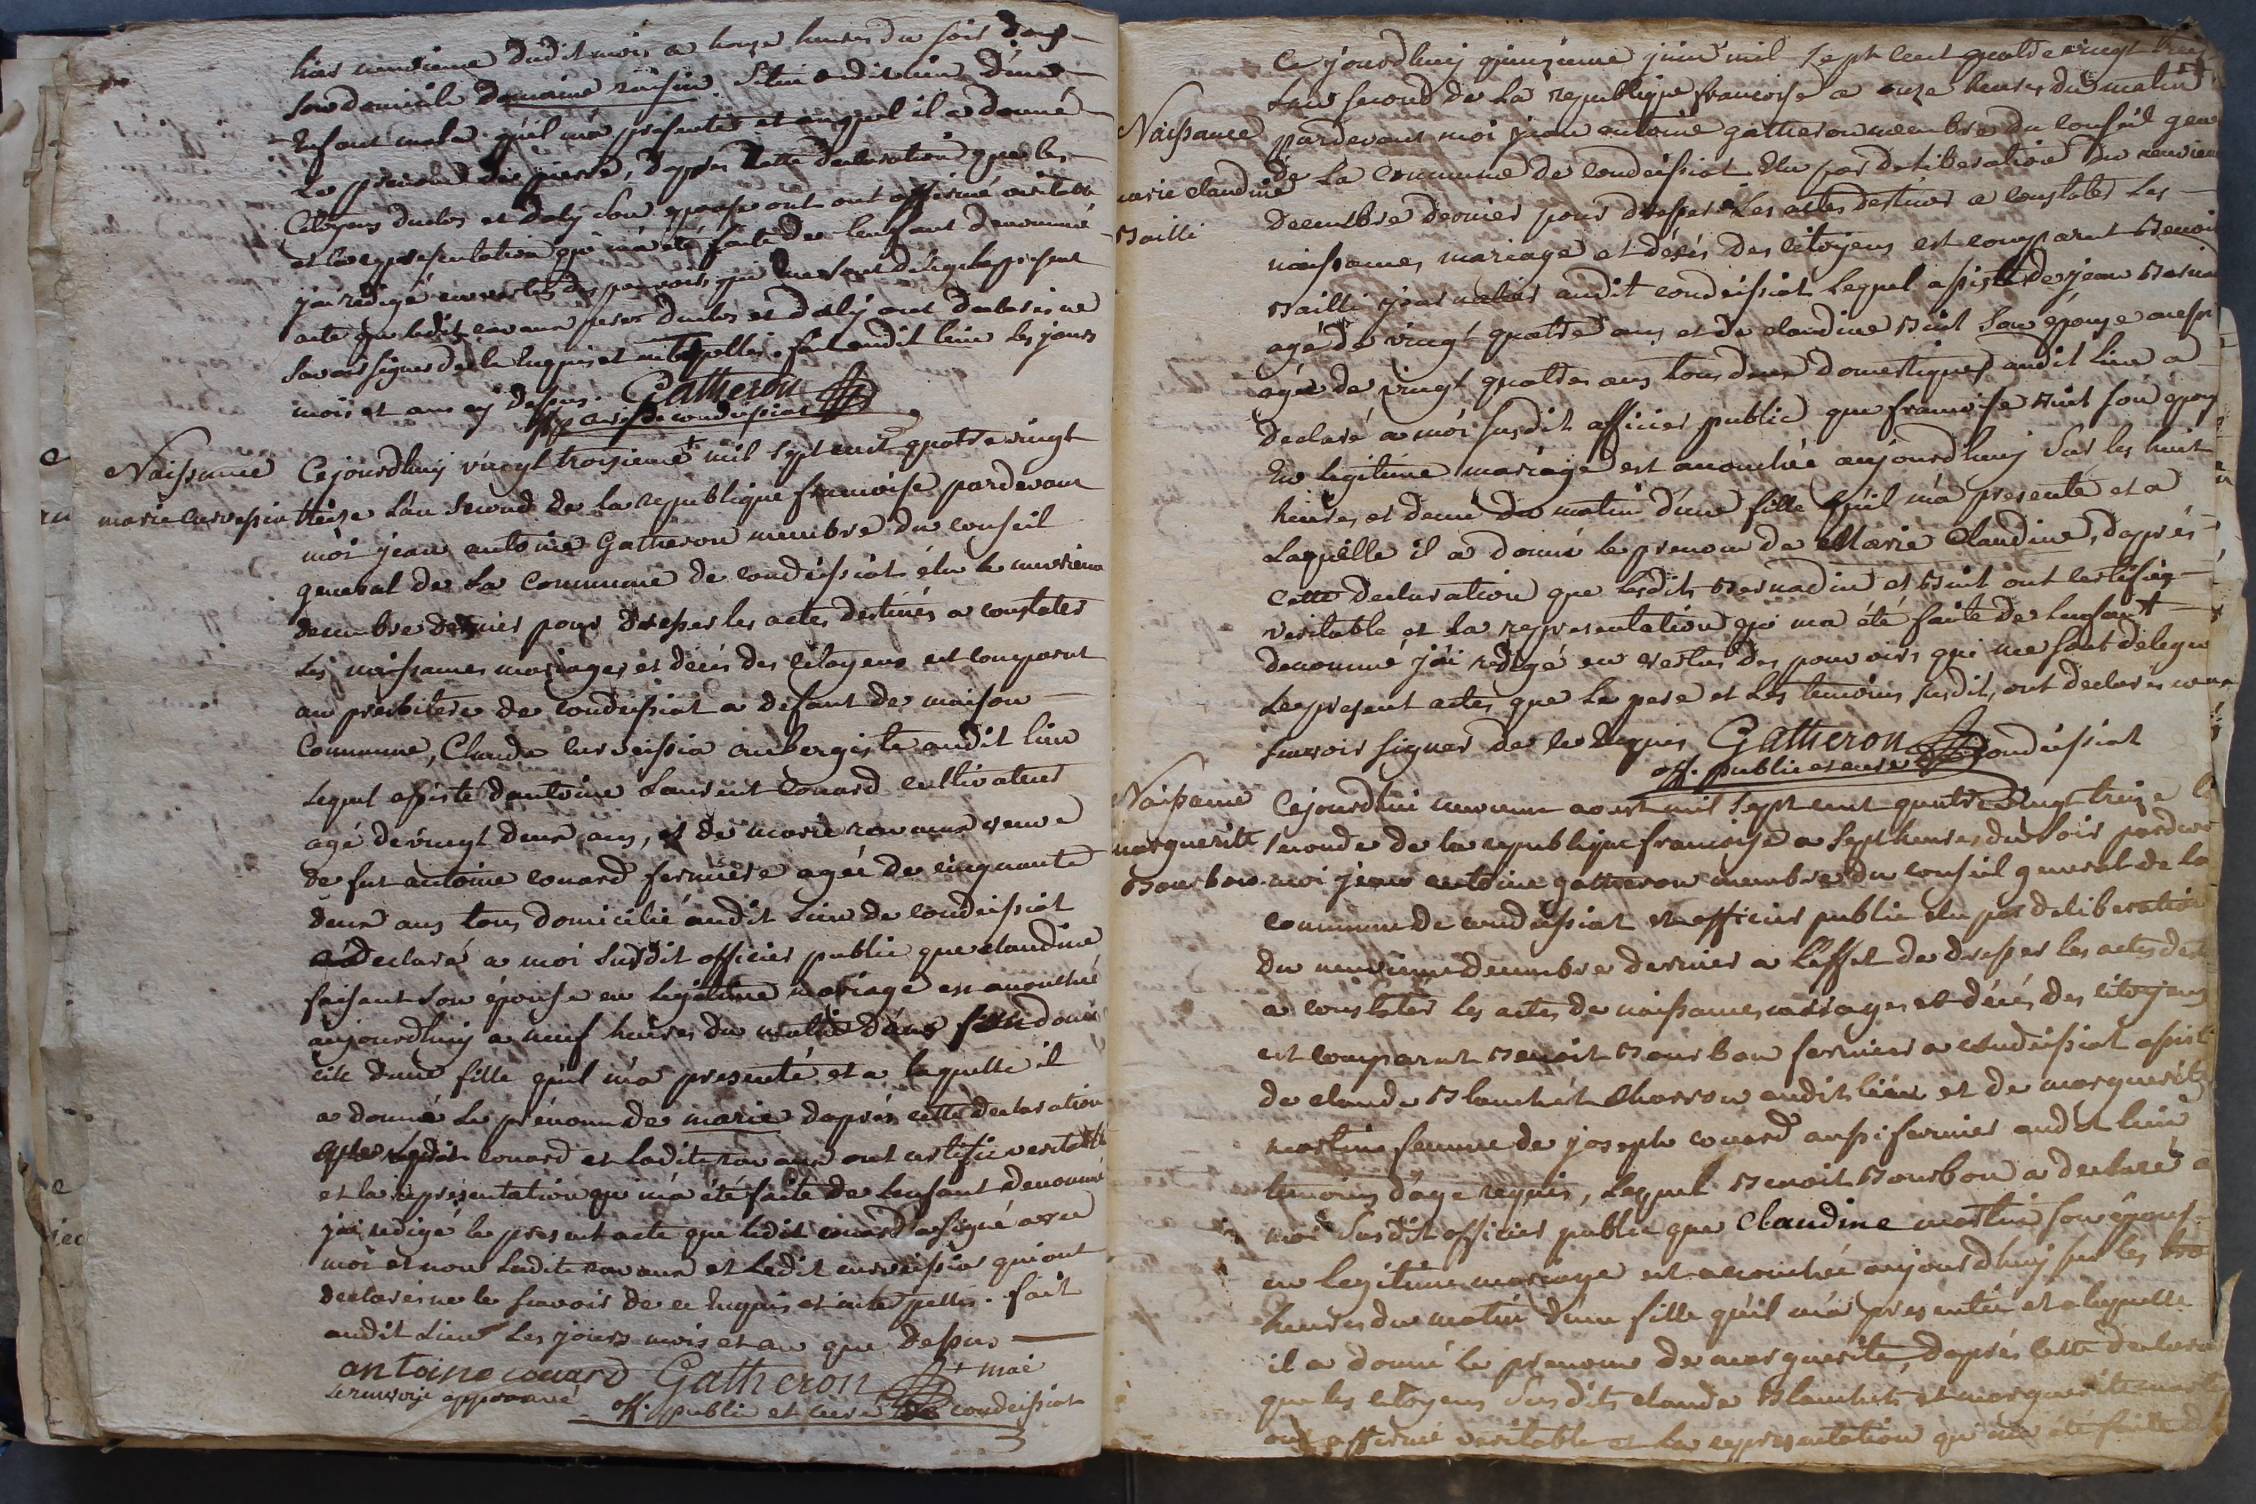 hier neuvieme dudit mois a honze heures du soir dans
son domicile domaine raisin
Enfant male qu'il m'a presenté et auquel il a donné
Le prenom de pierre, d'apprès cette declaration que les
Citoyens duclos et daly son epouse ont affirmé veritable
et la representation qui m'a été faite de lenfant denommé
j'ai rédigé en vertu des pouvoirs qui me sont délégués le present
acte que ledit pere duclos et daly ont declarés ne
savoir signer de ce Enquis et interpellés. fait audit lieu les jours
mois et an cy dessus. Gatheron
off. p. curé de condeissiat
Naissance
marie curveissia
Cejourdhuy vingt troisieme + mil sept cent quatre vingt
treize L'an second de la republique francoise pardevant
moi jean antoine Gatheron membre du conseil
general de La Commune de condeissiat élu le neuvieme
decembre dernier pour dresser les actes destinés a constater
Les naissances mariages et décés des citoyens est comparut
au presbitere de condeissiat a défaut de maison
Commune, Claude curveissia aubergiste audit lieu
Lequel assisté d'antoine Laurent Couard cultivateur
agé de vingt deux ans, et de marie ravaux veuve
de fut antoine couard fermiere agée de cinquante
deux ans tous domicilié audit Lieu de condeissiat
a declaré a moi susdit officier public que claudine
faisant son épouse en legitime mariage est accouchée
aujourdhuy a neuf heures du matin dans son domi
cile d'une fille qu'il m'a presenté et a laquelle il
a donné Le prénom de marie d'aprés cette declaration
que ledit couard et ladite ravaux ont certifié veritable
et la representation qui m'a été faite de lenfant denommé
j'ai redigé le present acte que ledit couard a signé avec
moi et non Ladite ravaux et Ledit curveissia qui ont
declarés ne le scavoir de ce Enquis et interpellés. fait
audit Lieu Les jours mois et an que Dessus
antoine couard Gatheron + mai
le renvoye approuvé off. public et curé de condeissiat
Naissance
marie claudine
Bailli
Ce jourdhuy quinzieme juin mil sept cent quatre vingt treize
Lan second de La republique francoise a onze heures du matin
pardevant moi jean antoine gatheron membre du conseil gen
de La Commune de condeissiat Elu par deliberation du neuviem
decembre dernier pour dresser Les actes destinés a constater Les
naissances, mariage et décés des citoyens est comparut Benoit
Bailli journalier audit condeissiat Lequel assisté de jean
agé de vingt quatre ans et de claudine Buit son épouse aussi
agée de vingt quatre ans tous deux domestiques audit Lieu a
declaré a moi susdit officier public que francoise Buit son épouse
En legitime mariage est accouchée aujourdhuy sur les huit
heures et demi du matin d'une fille qu'il m'a presenté et a
Laquelle il a donné le prenom de Marie Claudine, d'aprés
Cette declaration que lesdits Bernadin et Buit ont certifiés
veritable et La representation qui ma été faite de lenfant
denommé j'ai redigé en vertu des pouvoirs qui me sont delegu
Le present actes que Le pere et Les temoins susdits, ont declarés ne
savoir signer de ce Enquis Gatheron
off. public et curé de Condeissiat
Naissance
marguerite
Bourbon
Cejourdhui neuvieme aoust mil sept cent quatre vingt treize l
seconde de la republique francoise a sept heures du soir pardev
moi jean antoine gatheron membre du conseil general de la
commune de condeissiat et officier public elu par deliberation
du neuvieme decembre dernier a l'effet de dresser les actes dest
a constater les actes de naissances mariages et décés des citoyens
est comparut Benoit Bourbon fermier a condeissiat assist
de claude Blanchet charron audit lieu et de marguerite
martin femme de joseph couard aussi fermier audit lieu
temoins d'age requis, Lequel Benoit Bourbon a declaré a
moi susdit officier public que Claudine martin son épouse
en legitime mariage est accouchée aujourdhuy sur les
heures du matin d'une fille qu'il m'a presentée et a laquelle
il a donné le prenom de marguerite, d'aprés cette declara
que les citoyens susdits claude Blanchet et marguerite mart
ont affirmé veritable et La representation qui m'a été faite d